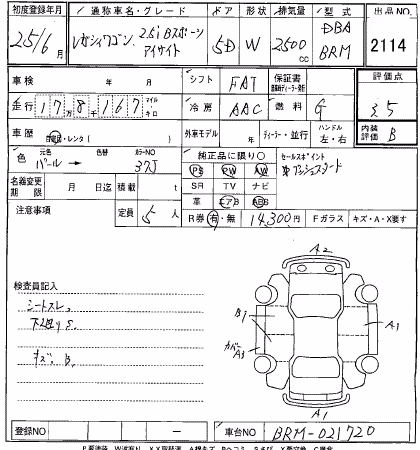 初度登録年月 通称車名・グレード ドア 形状 排気量 型式 出品NO
25/6月 レガシィワゴン 2.5i Bスポーツ アイサイト 5D W 2500cc DBA BRM 2114
車検 年 月 シフト FAT 保証書 評価点
走行 17万8千167 マイル キロ 冷房 AAC 燃料 G 3.5
車歴 自家用・レンタ( ) 外車モデル 年 ディーラー・並行 ハンドル 左・右 内装評価 B
色 元色 パール→ 色替 カラーNO 37J 純正品に限り〇 セールスポイント
PS PW AW
名義変更期限 月 日迄 積載 t SR TV ナビ
革 エアB ABS
注意事項 定員 5人 R券 有・無 14,300円 Fガラス キズ・A・X要す
検査員記入
シートスレ
下廻りS
キズ、B
A2
B1
A1
カバー A3
A1
登録NO 車台NO BRM-021720